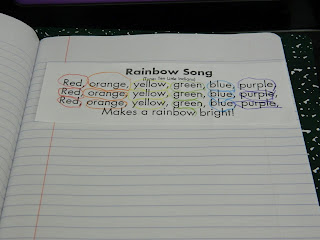 Rainbow Song
(Tune: Ten Little Indians)
Red, orange, yellow, green, blue, purple,
Red, orange, yellow, green, blue, purple,
Red, orange, yellow, green, blue, purple,
Makes a rainbow bright!